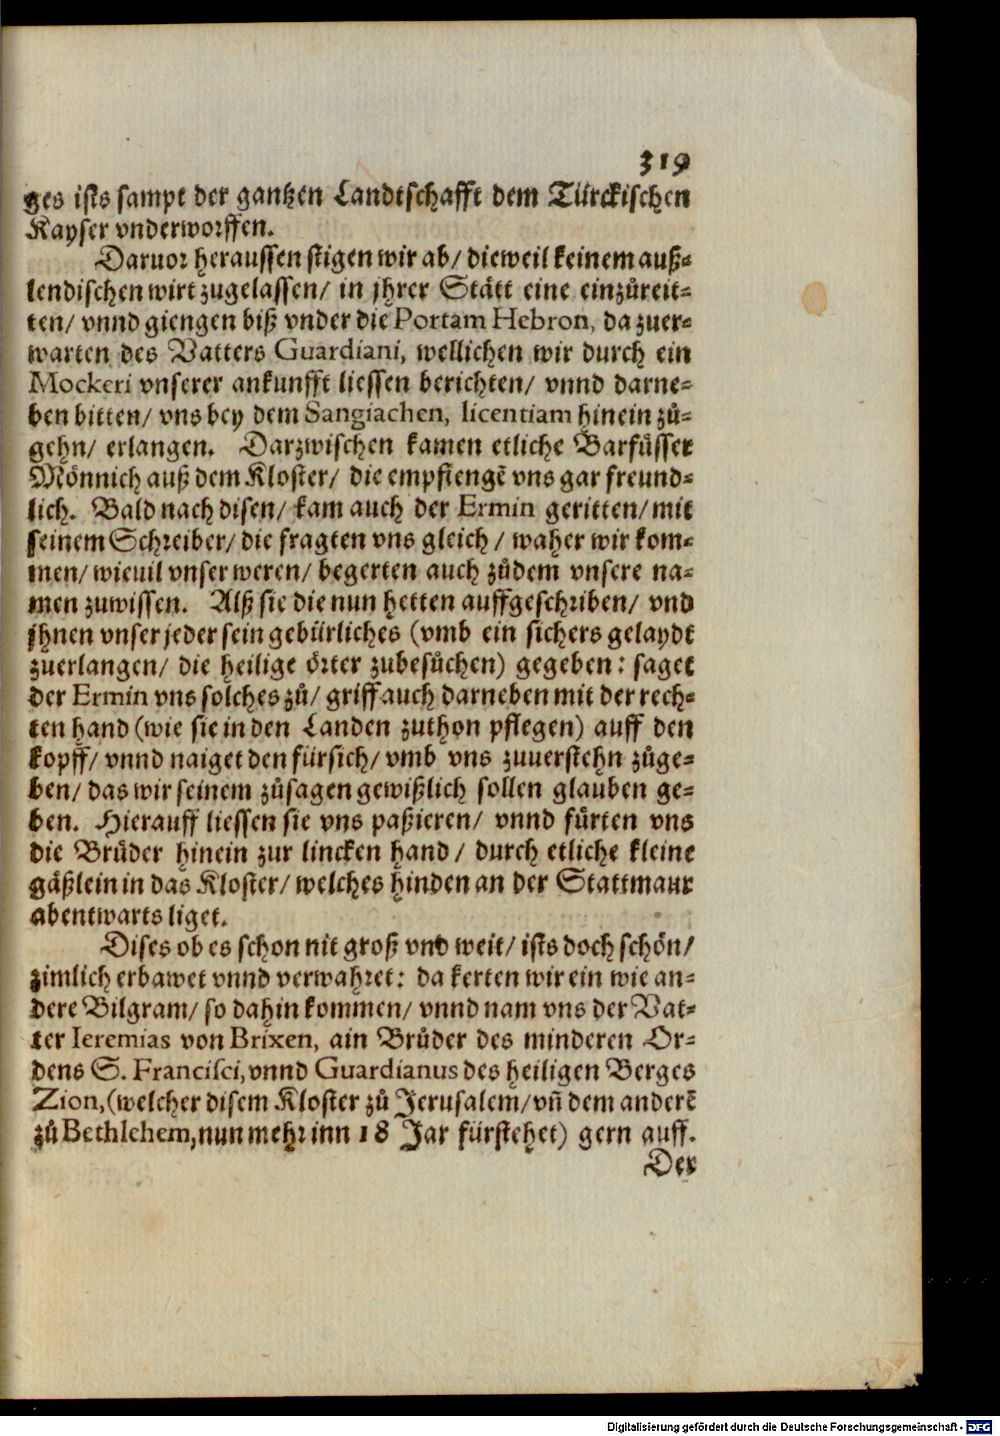 319
ges ists sampt der gantzen Landtschafft dem Türckischen
Kayser vnderworffen.
Daruor heraussen stigen wir ab/ dieweil keinem auß⸗
lendischen wirt zugelassen/ in jhrer Stätt eine einzůreit⸗
ten/ vnnd giengen biß vnder die Portam Hebron, da zuer⸗
warten des Vatters Guardiani, wellichen wir durch ein
Mockeri vnserer ankunfft liessen berichten/ vnnd darne⸗
ben bitten/ vns bey dem Sangiachen, licentiam hinein zů⸗
gehn/ erlangen. Darzwischen kamen etliche Barfůsser
Mönnich auß dem Kloster/ die empfiengẽ vns gar freund⸗
lich. Bald nach disen/ kam auch der Ermin geritten/ mit
seinem Schreiber/ die fragten vns gleich/ waher wir kom⸗
men/ wieuil vnser weren/ begerten auch zůdem vnsere na⸗
men zuwissen. Alß sie die nun hetten auffgeschriben/ vnd
jhnen vnser jeder sein gebürliches (vmb ein sichers gelaydt
zuerlangen/ die heilige örter zubesůchen) gegeben: saget
der Ermin vns solches zů/ griff auch darneben mit der rech⸗
ten hand (wie sie in den Landen zuthon pflegen) auff den
kopff/ vnnd naiget den fürsich/ vmb vns zuuerstehn zůge⸗
ben/ das wir seinem zůsagen gewißlich sollen glauben ge⸗
ben. Hierauff liessen sie vns paßieren/ vnnd fürten vns
die Brůder hinein zur lincken hand/ durch etliche kleine
gäßlein in das Kloster/ welches hinden an der Stattmaur
abentwarts liget.
Dises ob es schon nit groß vnd weit/ ists doch schön/
zimlich erbawet vnnd verwahret: da kerten wir ein wie an⸗
dere Bilgram/ so dahin kommen/ vnnd nam vns der Vat⸗
ter Ieremias von Brixen, ain Brůder des minderen Or⸗
dens S. Francisci, vnnd Guardianus des heiligen Berges
Zion, (welcher disem Kloster zů Jerusalem/ vñ dem anderẽ
zů Bethlehem, nun mehr inn 18 Jar fürstehet) gern auff.
Der
Digitalisierung gefördert durch die Deutsche Forschungsgemeinschaft - DFG